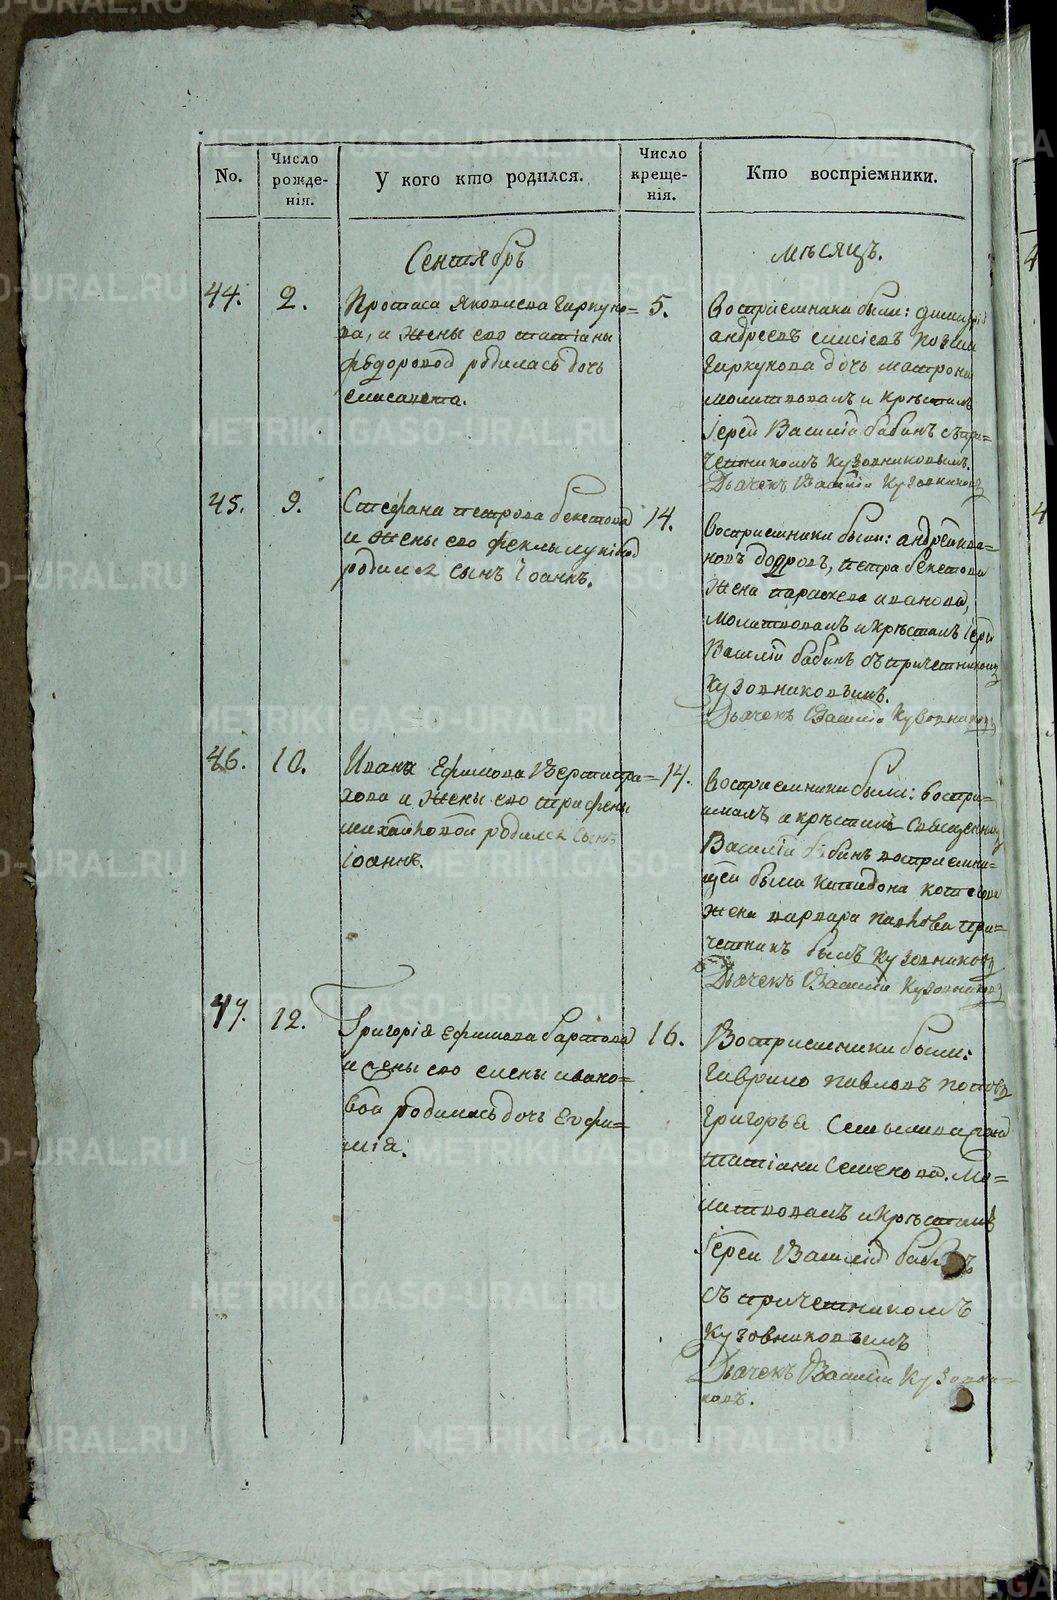 No.
Число рожде-нія.
У кого кто родился.
Число креще-нія.
Кто воспріемники.
Сентябрь
мѣсяцъ.
44.
2.
Протаса Яковлева Чиркуно=
ва, и жены его татіаны
федоровой родилась дочь
елисавета.
5.
Восприемники были: димитрій
андреевъ
Чиркунова дочь матрона
молитвовалъ и крѣстилъ
Іерей Василій бабинъ съ при=
четникомъ кузовниковымъ.
Дьячекъ Василій Кузовниковъ
45.
9.
Стефана петрова бекетова
и жены его феклы
родился сынъ Іоаннъ.
14.
Восприемники были: андрей ива=
новъ бодровъ, петра бекетова
жена параскева иванова,
молитвовалъ и крѣстилъ Іерей
Василій бабинъ съ причетникомъ
Кузовниковымъ.
Дьячекъ Василій Кузовниковъ
46.
10.
Ивана Ефимова
хова и жены его трифены
михайловой родился сынъ
іоаннъ.
14.
Восприемники были: воспри=
ималъ и крѣстилъ Священникъ
Василій бабинъ восприемни=
цей была
жена варвара причетникъ былъ Кузовниковъ
Дьячекъ Василій Кузовниковъ
47.
12.
Григорія ефимова бартова
и жены его елены ивано=
вой родилась дочь евфи=
мія.
16.
Восприемники были:
Гаврило павловъ поповъ
Григорья
татіана Семенова. Мо=
литвовалъ и крѣстилъ
Іерей Василій бабинъ
съ причетникомъ
Кузовниковымъ
Дьячекъ Василій Кузовни=
ковъ.
METRIKI.GASO-URAL.RU